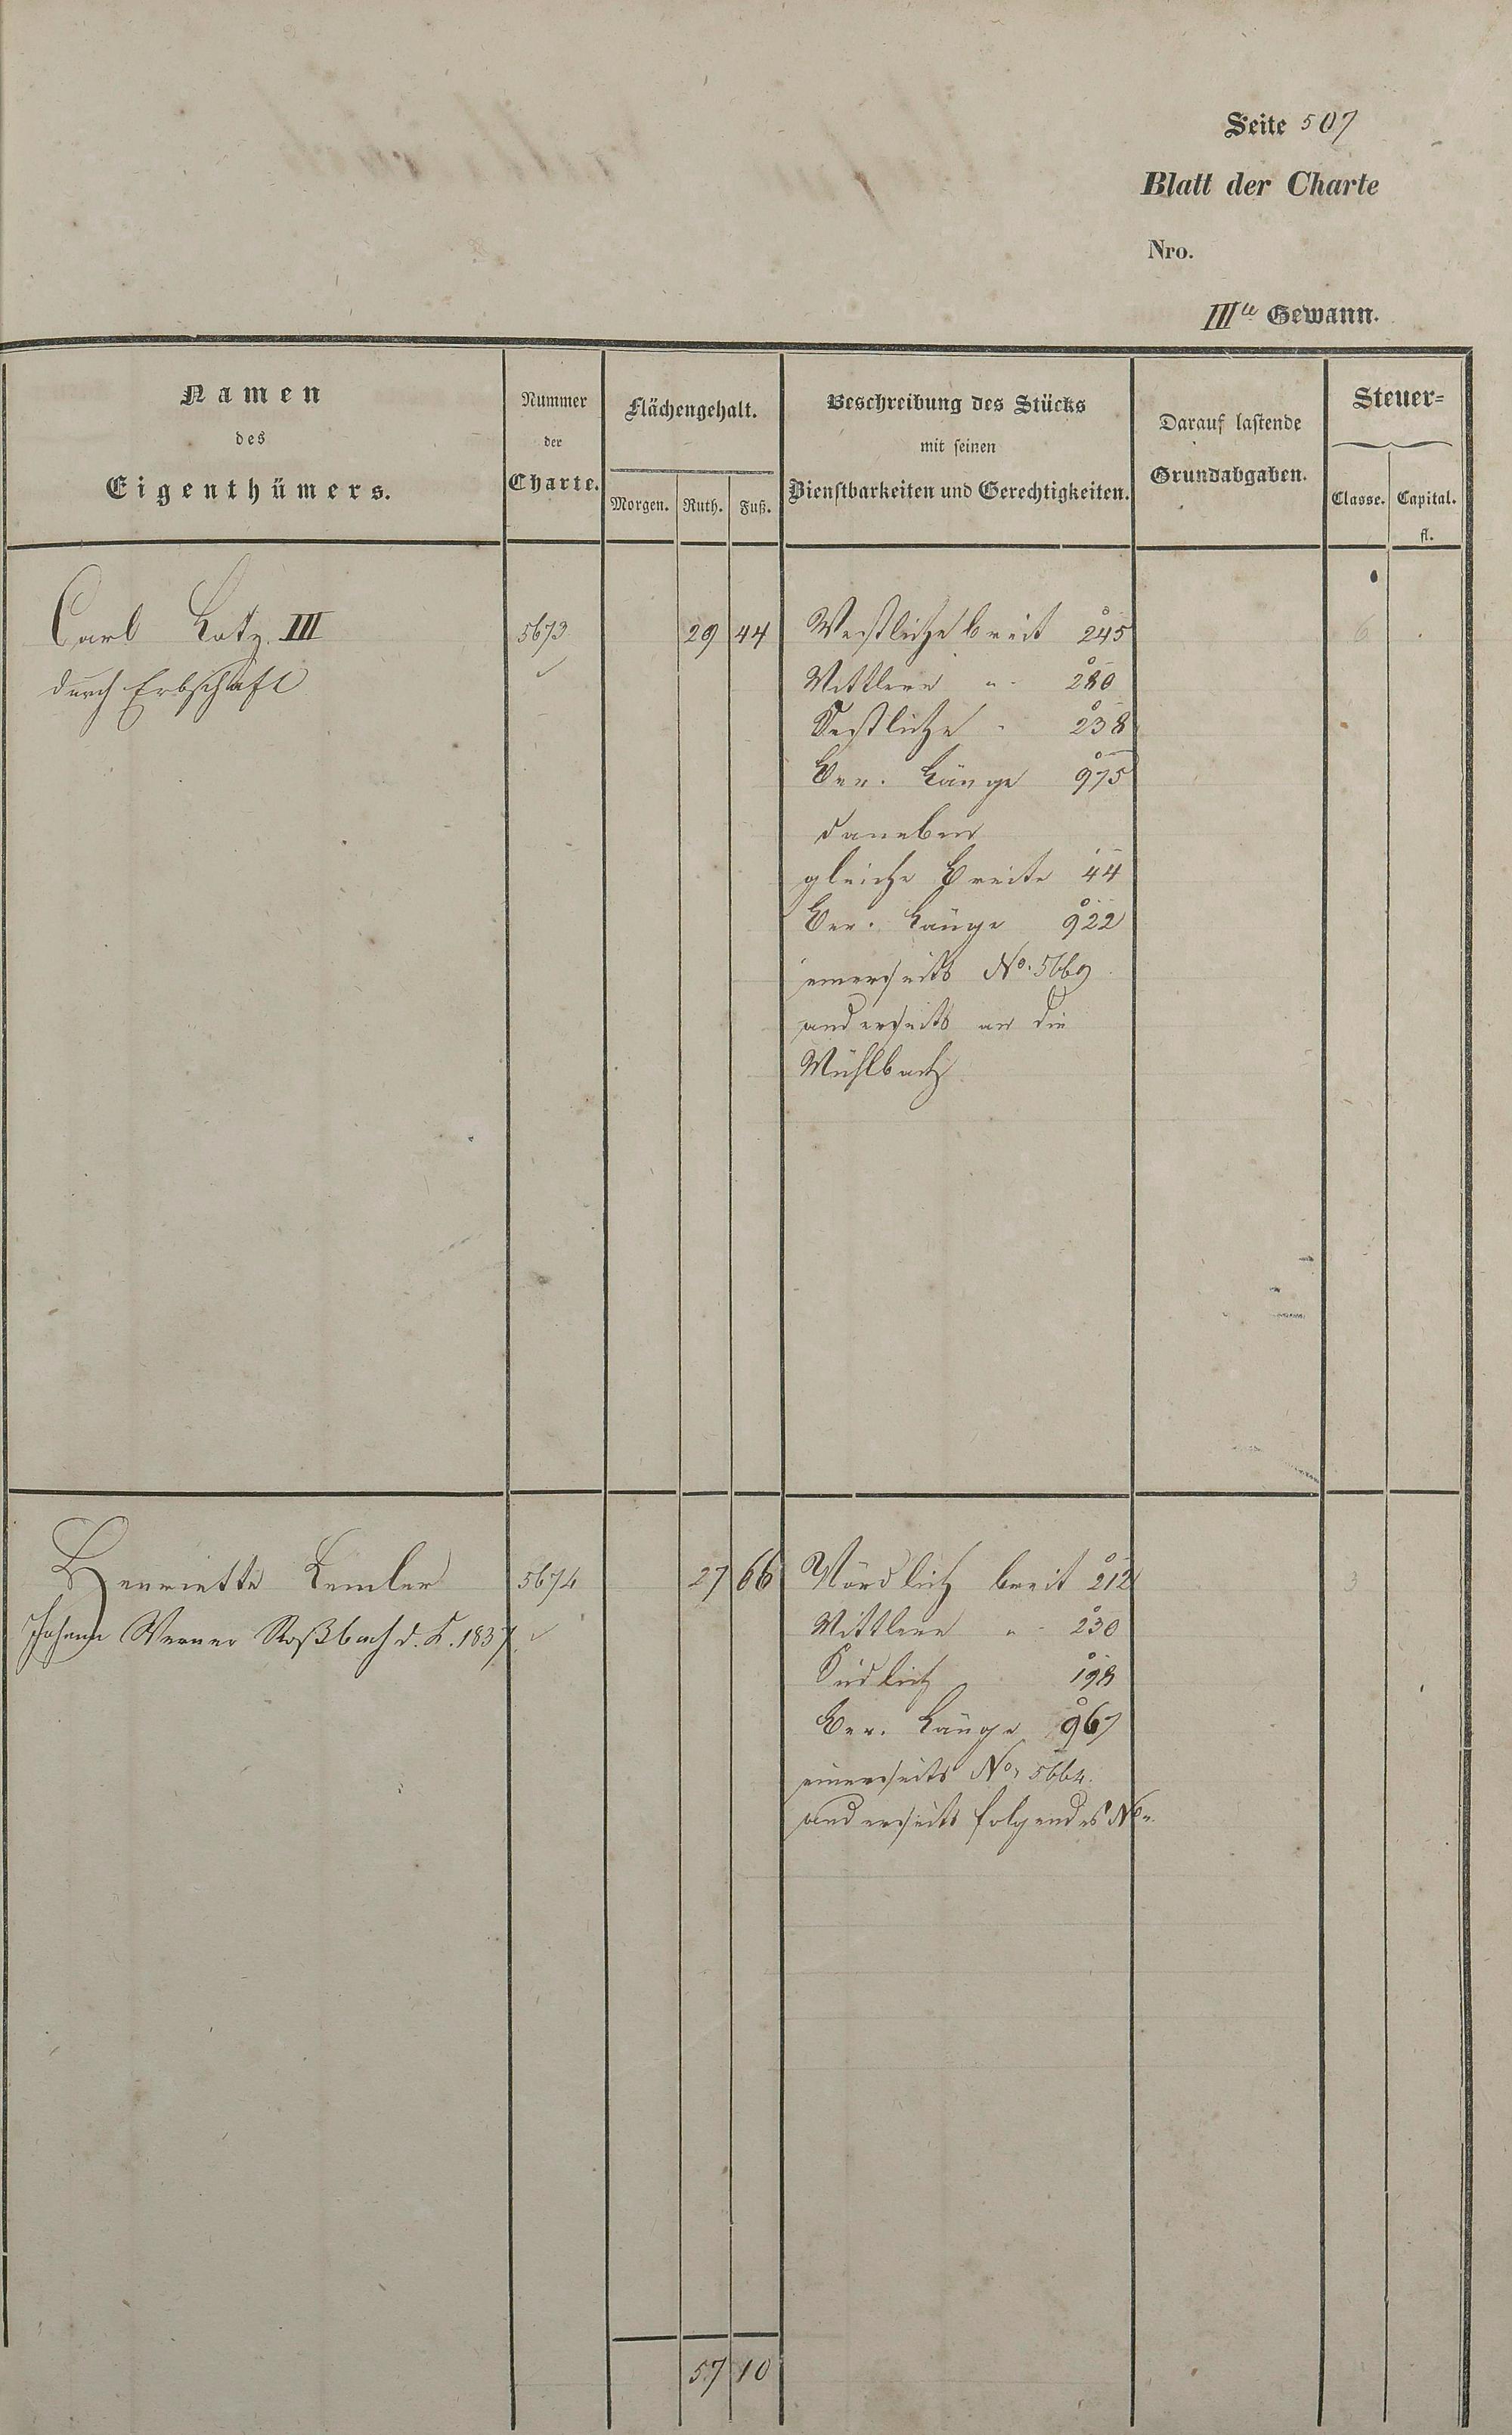 Seite 507
Blatt der Charte
Nro.
III te Gewann.
Namen
des
Eigenthümers.
Nummer
der
Charte.
Flächengehalt.
Morgen. Ruth. Fuß.
Beschreibung des Stücks
mit seinen
Dienstbarkeiten und Gerechtigkeiten.
Darauf lastende
Grundabgaben.
Steuer=
Classe. Capital.
fl.
Carl Lotz III 5673 29 44 Westliche breit 245 6
durch Erbschaft Mittlere " 280
Oestliche " 238
Ber. Länge 975
daneben
gleiche Breite 44
Ber. Länge 922
einerseits No. 5669
anderseits an die
Mühlbach
Henriette Lemler 5674 27 66 Nördlich breit 212 3
Johann Werner Roßbach d. K. 1837 Mittlere " 230
Südlich 198
Ber. Länge 967
einerseits No. 5664.
anderseits folgendes No.
57 10